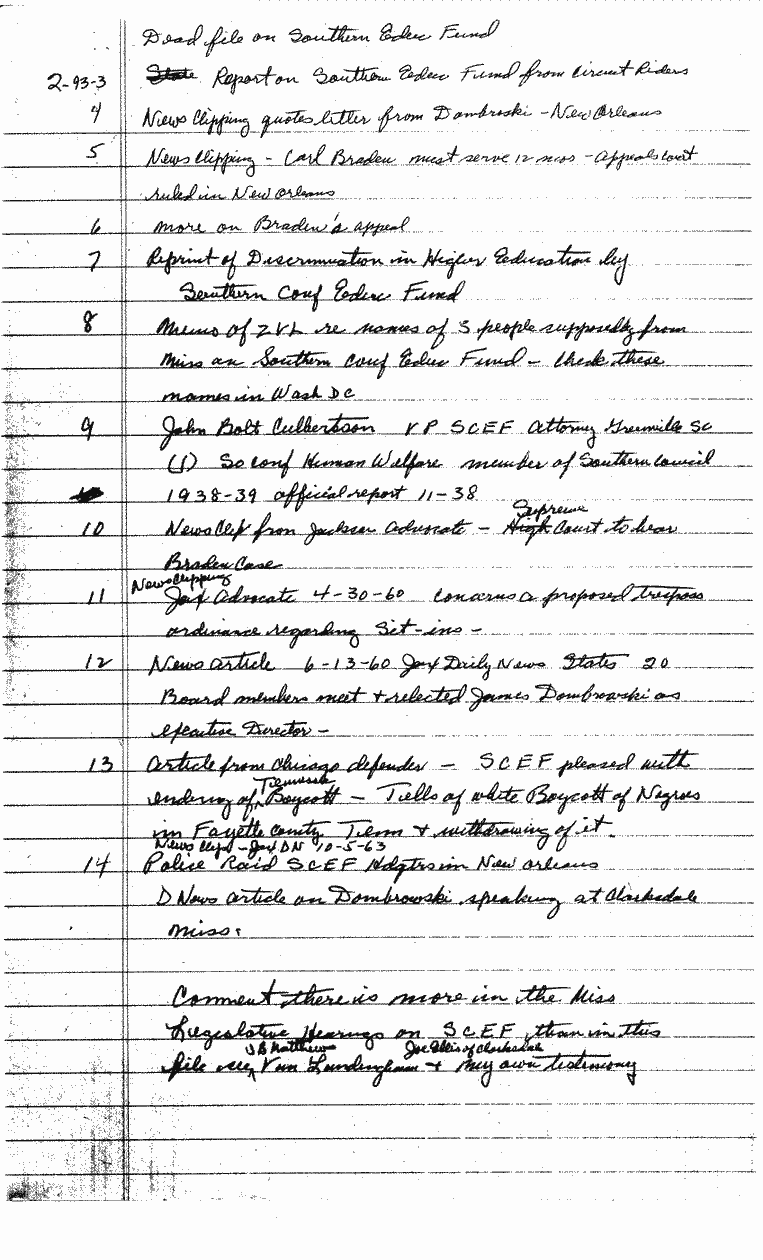 Dead file on Southern Educ Fund
2-93-3 State Report on Southern Educ Fund from Circuit Riders
4 News Clipping quotes letter from Dombroski - New Orleans
5 News Clipping - Carl Braden must serve 12 mos - appeals court
ruled in New Orleans
6 more on Braden's appeal
7 Reprint of Discrimination in Higher Education by
Southern Conf Educ Fund
8 Memo of ZVL re names of 3 people supposedly from
Miss on Southern Conf Educ Fund - Check these
names in Wash DC
9 John Bolt Culbertson VP SCEF Attorney Greenville SC
(1) So Conf Human Welfare member of Southern Council
1938-39 official report 11-38
Supreme
10 News Clip from Jackson Advocate - High Court to hear
Braden Case
News Clipping
11 Jax Advocate 4-30-60 concerns a proposed trespass
ordinance regarding Sit-ins -
12 News article 6-13-60 Jax Daily News States 20
Board members meet + relected James Dombrowski as
executive Director -
13 Article from Chicago defender - SCEF pleased with
Tennessee
ending of Boycott - Tells of white Boycott of Negros
in Fayette County Tenn + withdrawing of it.
News Clips - Jax DN 10-5-63
14 Police Raid SCEF Hdqtrs in New Orleans
D News article on Dombrowski speaking at Clarksdale
Miss.
Comment, there is more in the Miss
Legislative Hearings on SCEF, than in this
JB Matthews Joe Ellis of Clarksdale
file see, Van Landingham + my own testimony